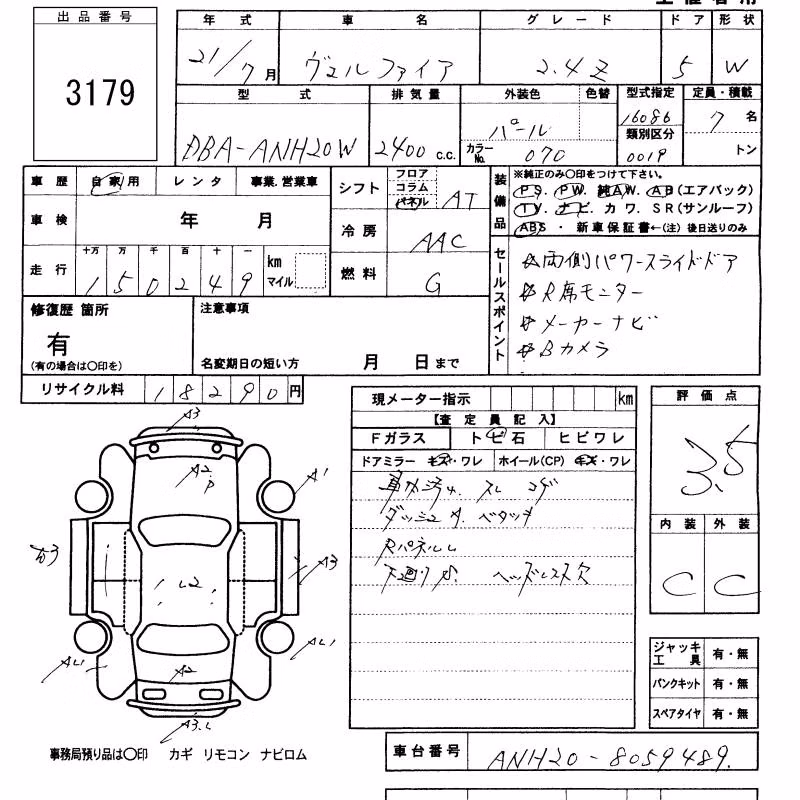 出品番号
3179
年式 車名 グレード ドア 形状
21/7月 ヴェルファイア 2.4Z 5 W
型式 排気量 外装色 色替 型式指定 定員・積載
DBA-ANH20W 2400 c.c. パール 16086 7名
カラーNo. 070 類別区分 0019 トン
車歴 自家用 レンタ 事業.営業車
シフト フロア コラム パネル AT
装備品 ※純正のみ〇印をつけて下さい。
PS. PW. 純AW. AB(エアバック)
TV. ナビ カワ. SR(サンルーフ)
ABS ・ 新車保証書←(注) 後日送りのみ
車検 年 月
冷房 AAC
走行 十万 万 千 百 十 一
150249 km マイル
燃料 G
セールスポイント
両側パワースライドドア
R席モニター
メーカーナビ
Bカメラ
修復歴 箇所
有
(有の場合は〇印を)
注意事項
名変期日の短い方 月 日まで
リサイクル料 18290円
現メーター指示 km
【査定員記入】
Fガラス トビ石 ヒビワレ
ドアミラー キズ・ワレ ホイール(CP) キズ・ワレ
スレ コゲ
ダッシュ ベタツキ
Rパネルし
下廻りサ. ヘッドレス欠
評価点
3.5
内装 外装
C C
ジャッキ 工具 有・無
パンクキット 有・無
スペアタイヤ 有・無
A3
A2
P
A1
A3
L2
AL1
AL1
A2
A3.L
事務局預り品は〇印 カギ リモコン ナビロム
車台番号 ANH20-8059489.